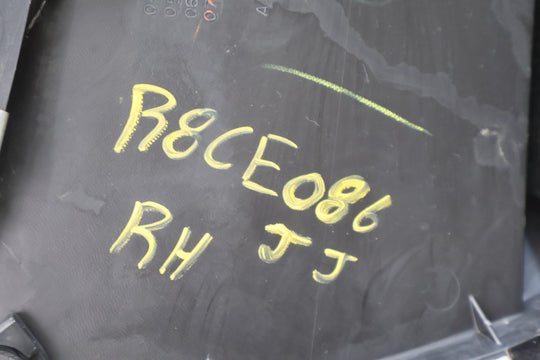 R8CE086
RH JJ